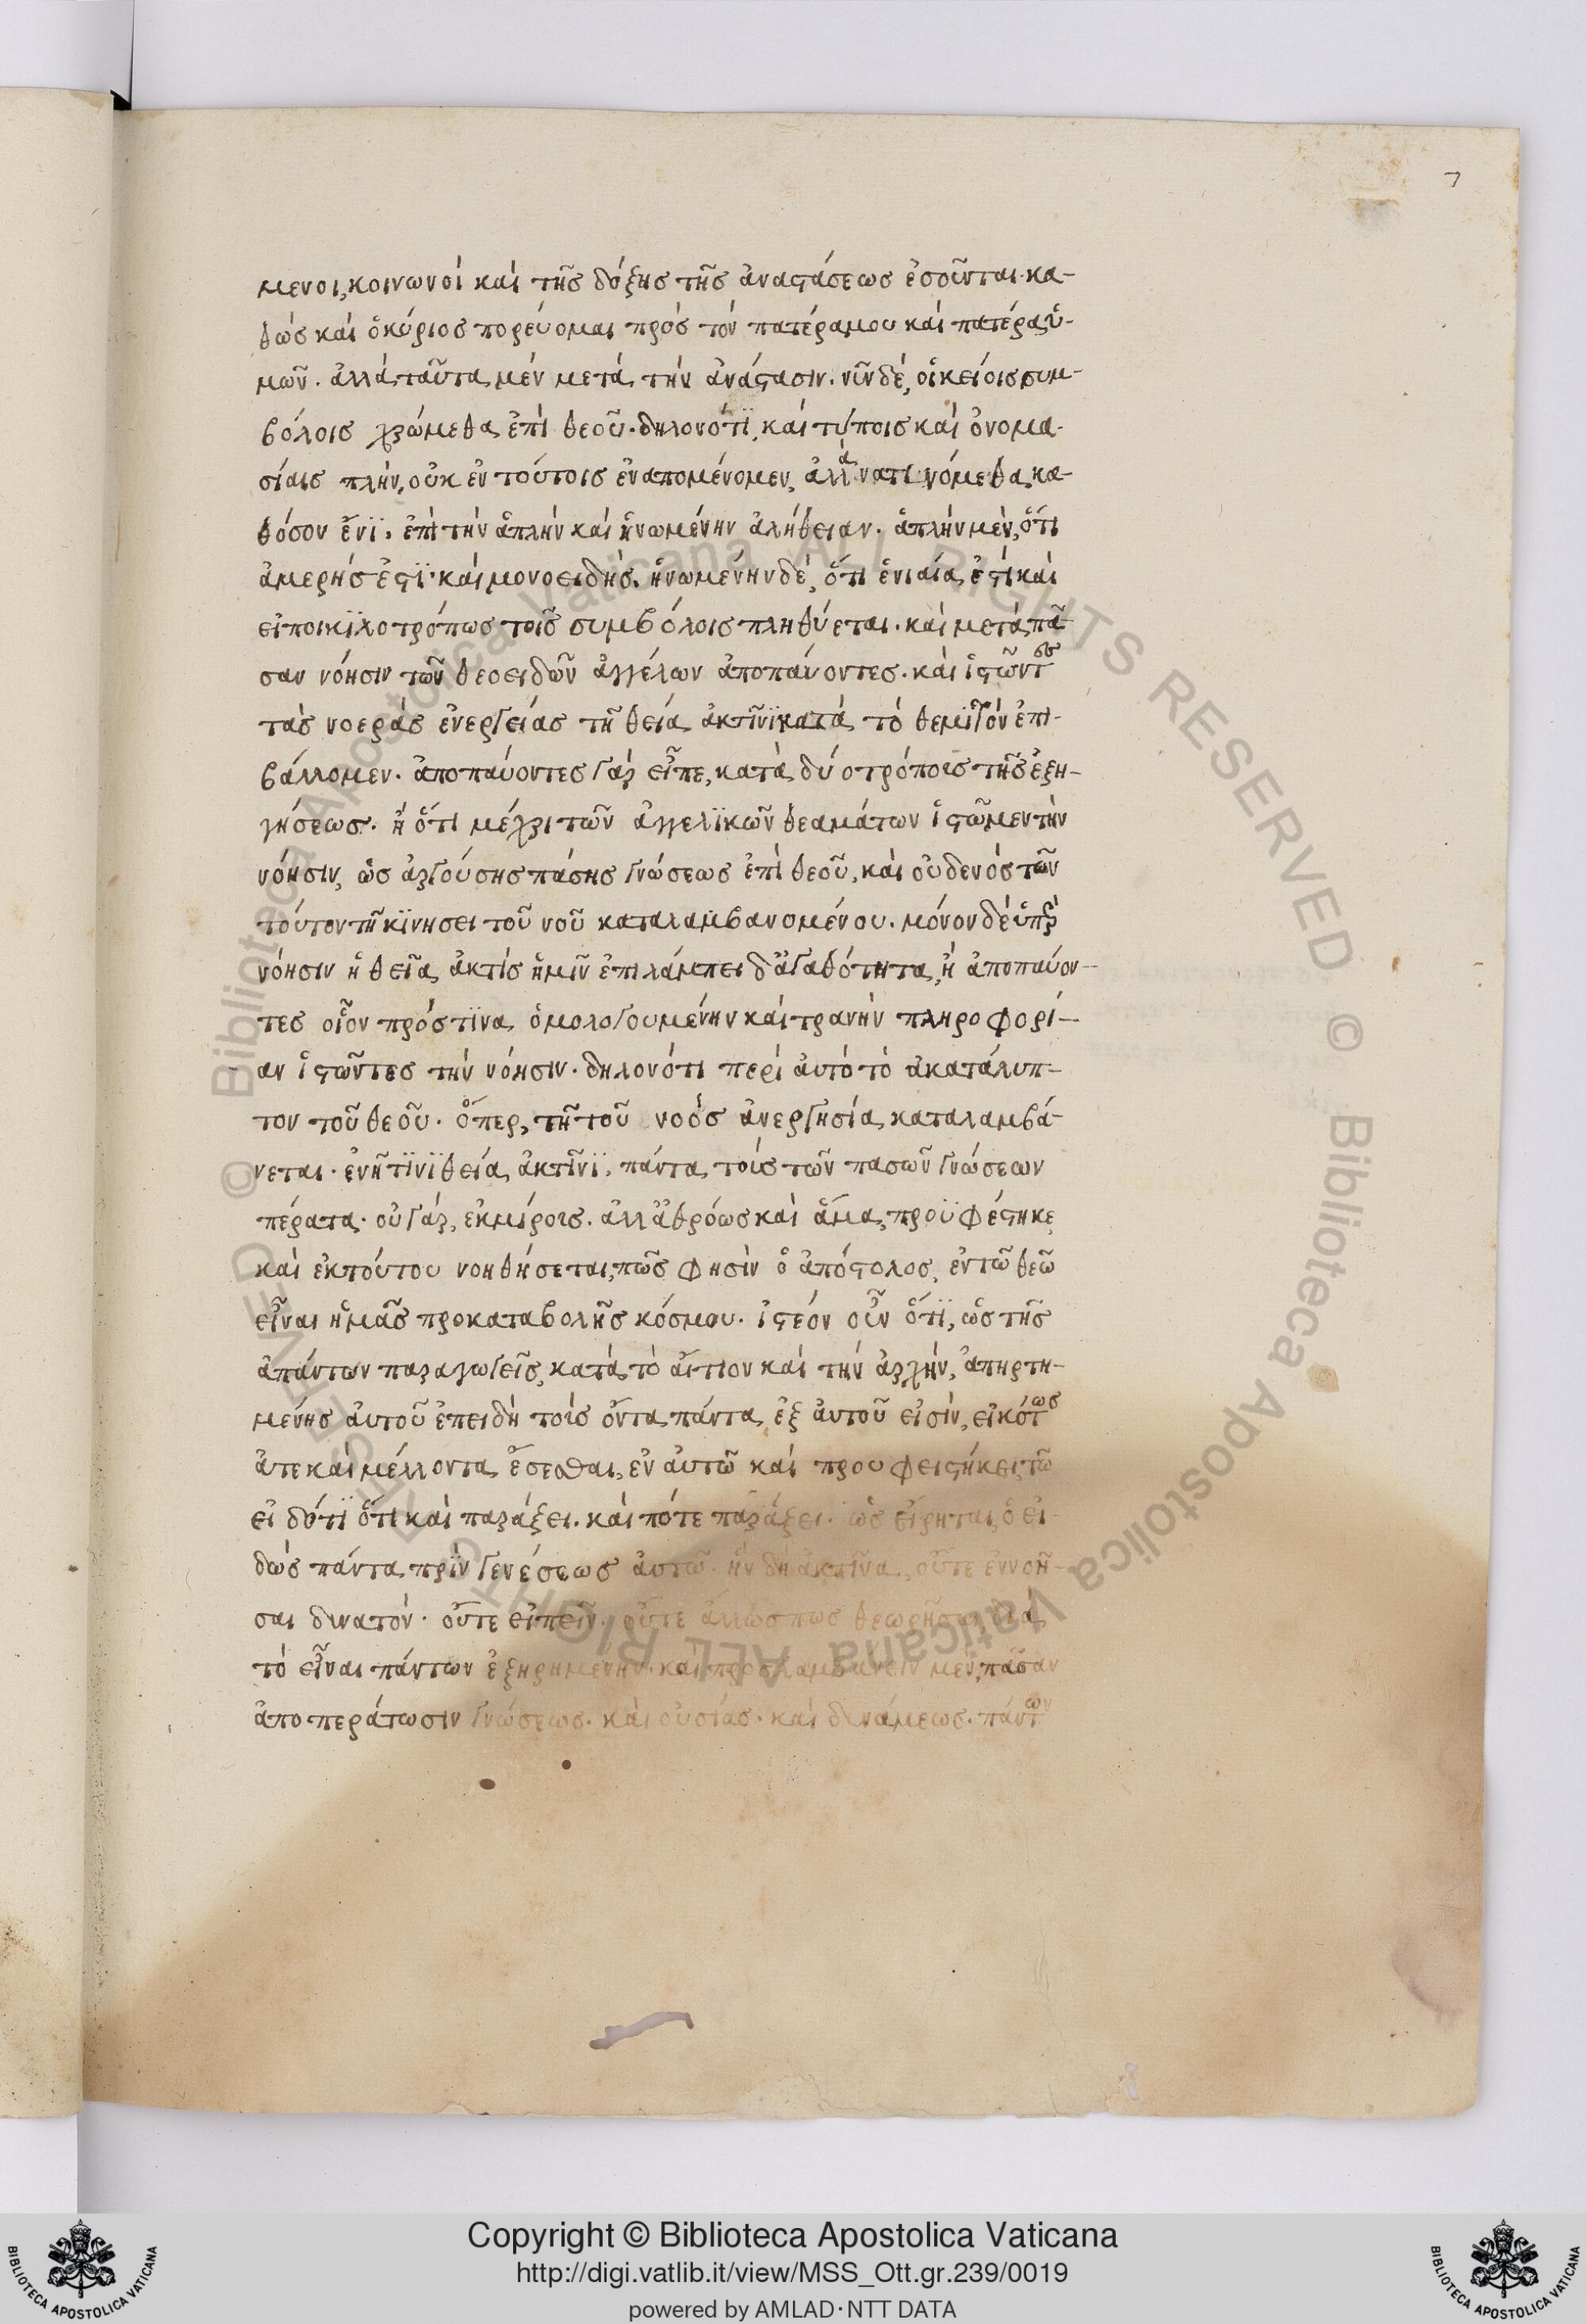 7
μενοι, κοινωνοί καὶ τῆς δόξης τῆς ἀναστάσεως ἐσοῦνται· κα-
θὼς καὶ ὁ κύριος πορεύομαι πρὸς τὸν πατέρα μου καὶ πατέρα ὑ-
μῶν. ἀλλὰ ταῦτα μὲν μετὰ τὴν ἀνάστασιν. νῦν δὲ, οἰκείοις συμ-
βόλοις χρώμεθα ἐπὶ θεοῦ· δηλονότϊ, καὶ τύποις καὶ ὀνομα-
σίαις πλὴν, οὐκ ἐν τούτοις ἐναπομένομεν, ἀλλ' ἀνατινόμεθα, κα-
θόσον ἔνϊ. ἐπὶ τὴν ἁπλὴν καὶ ἡνωμένην ἀλήθειαν. ἁπλὴν μὲν, ὅτι
ἀμερής ἐστϊ· καὶ μονοειδής. ἡνωμένην δὲ, ὅτι ἑνιαία ἐστὶ καὶ
εἰ ποικϊλοτρόπως τοῖς συμβόλοις πληθύεται. καὶ μετὰ πᾶ
σαν νόησιν τῶν θεοειδῶν ἀγγέλων ἀποπαύοντες. καὶ ἱστῶντες
τὰς νοερὰς ἐνεργείας τῆ θεία ἀκτῖνϊ κατὰ τὸ θεμϊτὸν ἐπι-
βάλλομεν. ἀποπαύοντες γὰρ εἶπε, κατὰ δύο τρόποις τῆς ἐξη-
γήσεως. ἢ ὅτι μέχρι τῶν ἀγγελϊκῶν θεαμάτων ἱστῶμεν τὴν
νόησιν, ὡς ἀργούσης πάσης γνώσεως ἐπὶ θεοῦ, καὶ οὐδενὸς τῶν
τούτον τῆ κϊνησει τοῦ νοῦ καταλαμβανομένου. μόνον δὲ ὑπὲρ
νόησιν ἡ θεῖα ἀκτίς ἡμῖν ἐπιλάμπει δἀγαθότητα, ἢ ἀποπαύον-
τες οἷον πρός τϊνα ὁμολογουμένην καὶ τρανὴν πληροφορί-
αν ἱστῶντες τὴν νόησιν. δηλονότι περὶ αὐτὸ τὸ ἀκατάλυπ-
τον τοῦ θεοῦ. ὅπερ, τῆ τοῦ νοὸς ἀνεργησία καταλαμβά-
νεται. ἐν ἧ τϊνϊ θεία ἀκτῖνϊ, πάντα τοίς τῶν πασῶν γνώσεων
πέρατα· οὐ γὰρ, ἐκ μίροις. ἀλλ' ἀθρόως καὶ ἅμα, προϋφέστηκε
καὶ ἐκ τούτου νοηθήσεται, πῶς φησὶν ὁ ἀπόστολος, ἐν τῶ θεῶ
εἶναι ἡμᾶς προκαταβολῆς κόσμου. ἰστέον οὖν ὅτϊ, ὡς τῆς
ἁπάντων παραγωγεῖς, κατὰ τὸ αἴτιον καὶ τὴν ἀρχὴν, ἀπηρτη-
μένης αὐτοῦ ἐπειδὴ τοίς ὄντα πάντα ἐξ αὐτοῦ εἰσὶν, εἰκότως
ἅτε καὶ μέλλοντα ἔσεσθαι, ἐν αὐτῶ καὶ προυφειστήκει, τῶ
εἰδότϊ ὅτι καὶ παράξει. καὶ πότε παράξει. ὡς εἴρηται, ὁ εἰ-
δὼς πάντα πρὶν γενέσεως αὐτῶ· ἣν δὴ ἀκτῖνα, οὔτε ἐννοῆ-
σαι δινατόν. οὔτε εἰπεῖν. οὔτε ἄλλως πως θεωρῆσαι, διὰ
τὸ εἶναι πάντων ἐξηρημένην. καὶ προσλαμβάνειν μὲν, πᾶσαν
ἀποπεράτωσιν γνώσεως. καὶ οὐσίας. καὶ δινάμεως. πάντων
© Biblioteca Apostolica Vaticana ALL RIGHTS RESERVED © Biblioteca Apostolica Vaticana ALL RIGHTS RESERVED
Copyright © Biblioteca Apostolica Vaticana
http://digi.vatlib.it/view/MSS_Ott.gr.239/0019
powered by AMLAD·NTT DATA
BIBLIOTECA APOSTOLICA VATICANA
BIBLIOTECA APOSTOLICA VATICANA